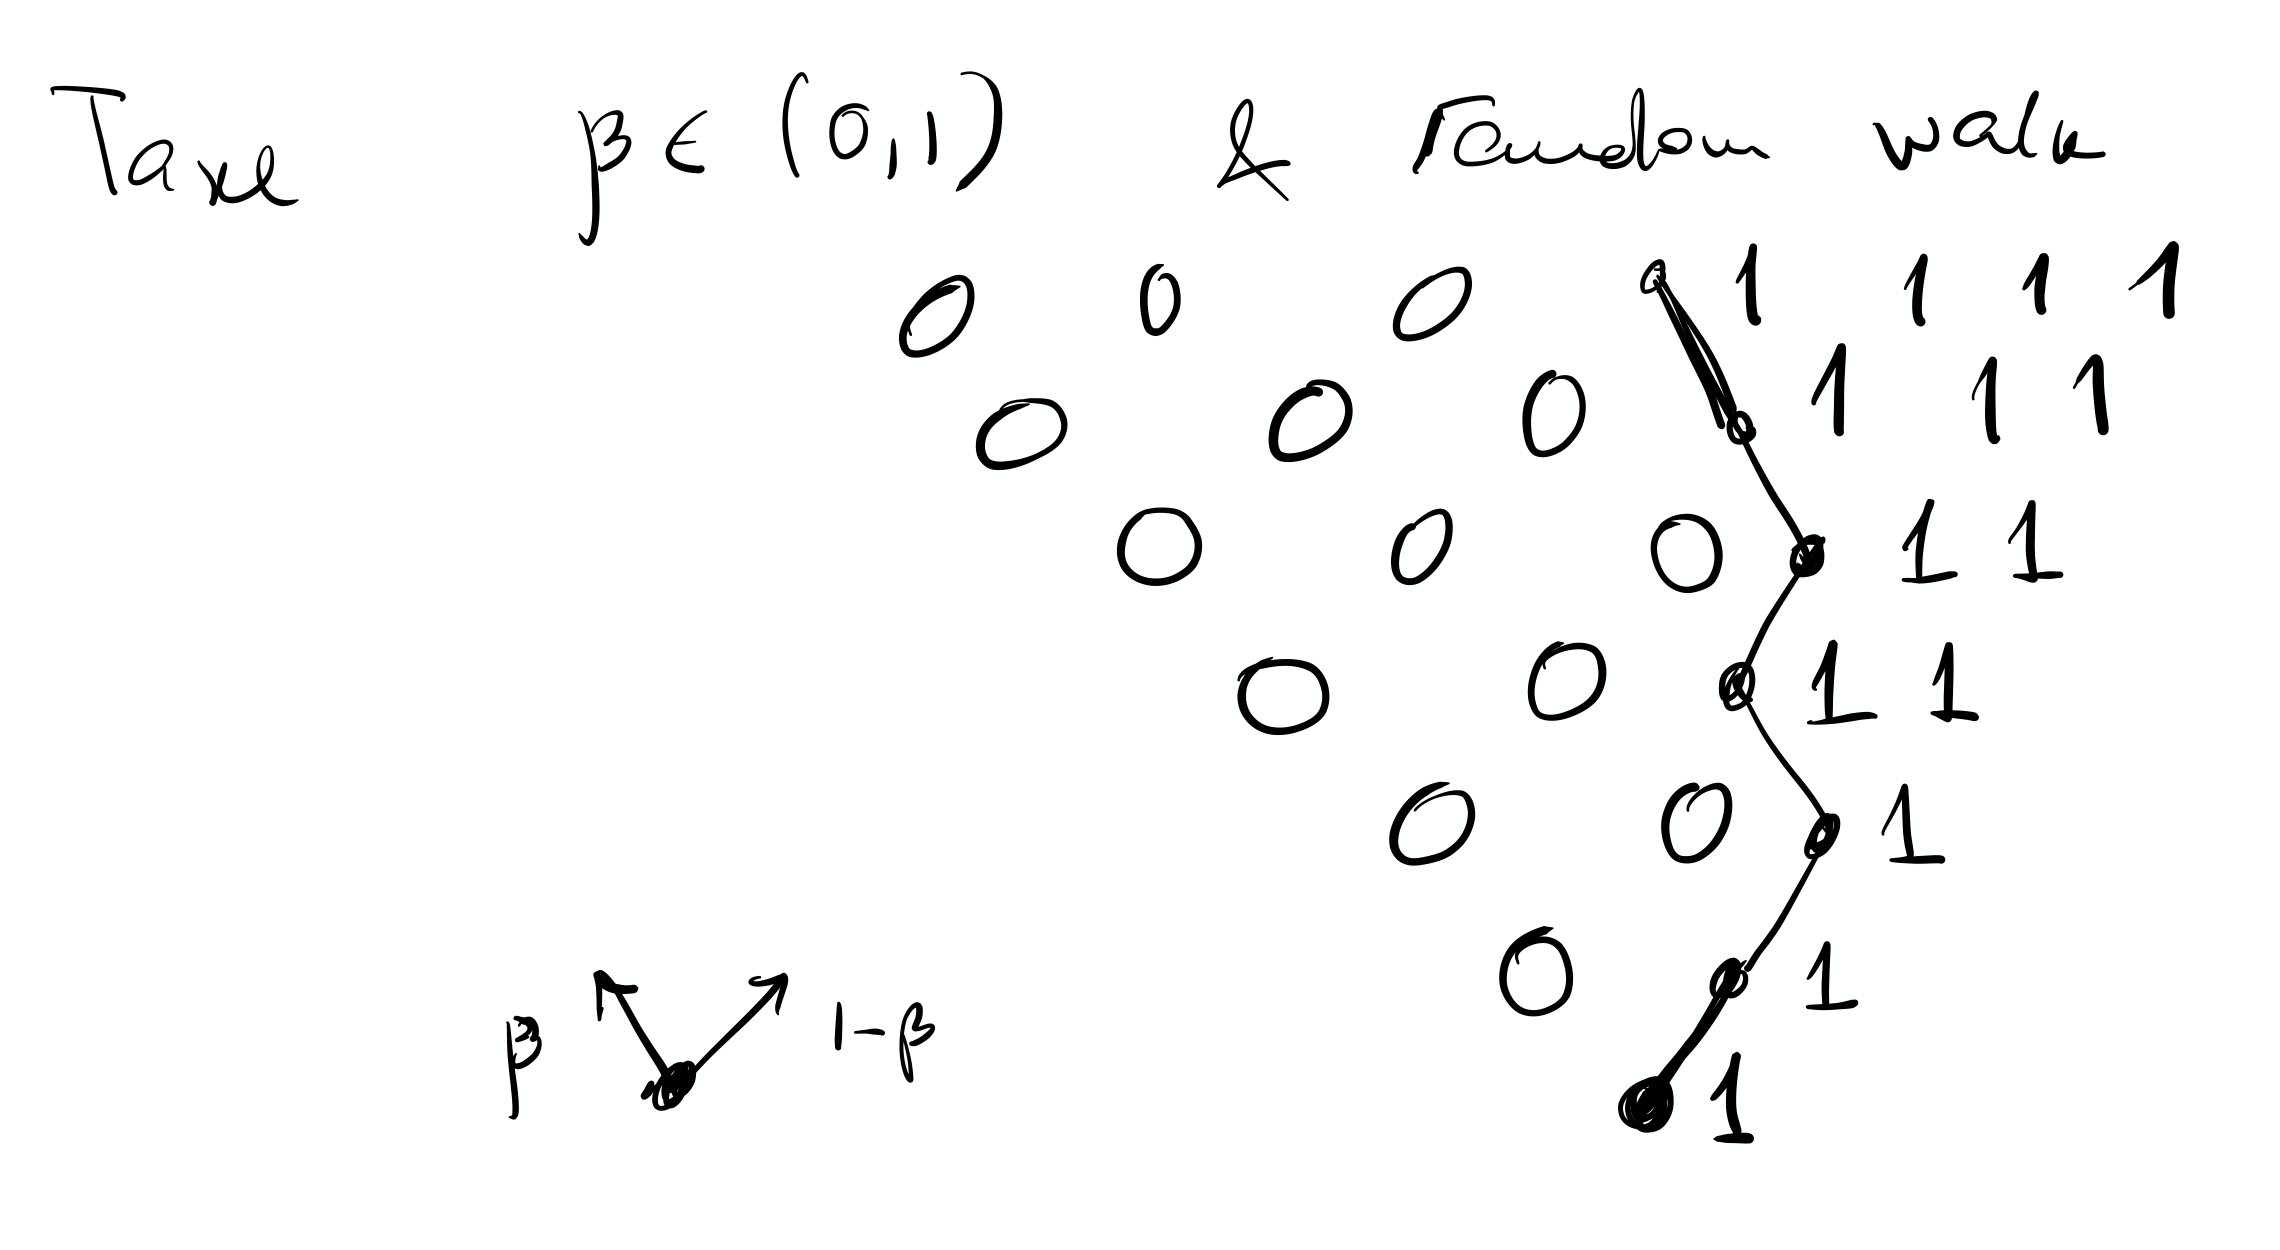 Take β ∈ (0,1) & random walk
0 0 0 1 1 1 1
0 0 0 1 1 1
0 0 0 1 1
0 0 1 1
0 0 1
0 1
β 1-β
1